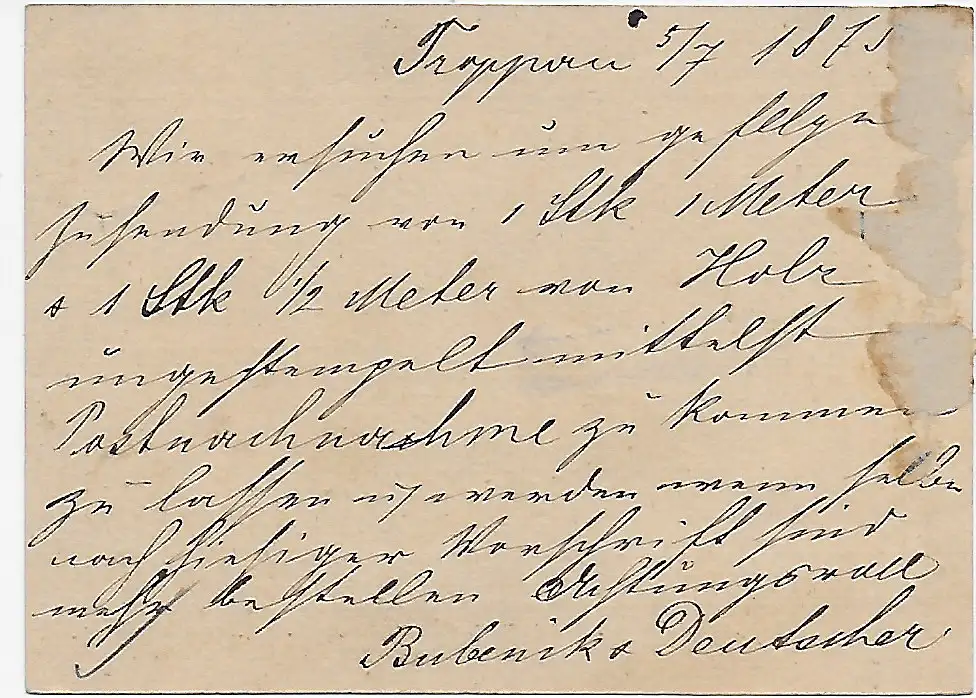 Troppau 5/7 187
Wir ersuchen um gefällige
Zusendung von 1 Stk 1 Meter
& 1 Stk 1/2 Meter von Holz
ungestempelt mittelst
Postnachnahme zu kommen
zu lassen u werden wenn selbe
nach hiesiger Vorschrift sind
mehr bestellen Achtungsvoll
Bubenik & Deutscher